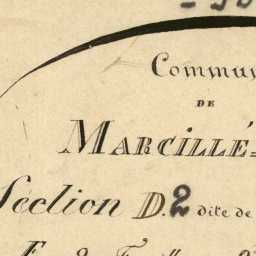 Commu
DE
MARCILLÉ-
Section D.2 dite de